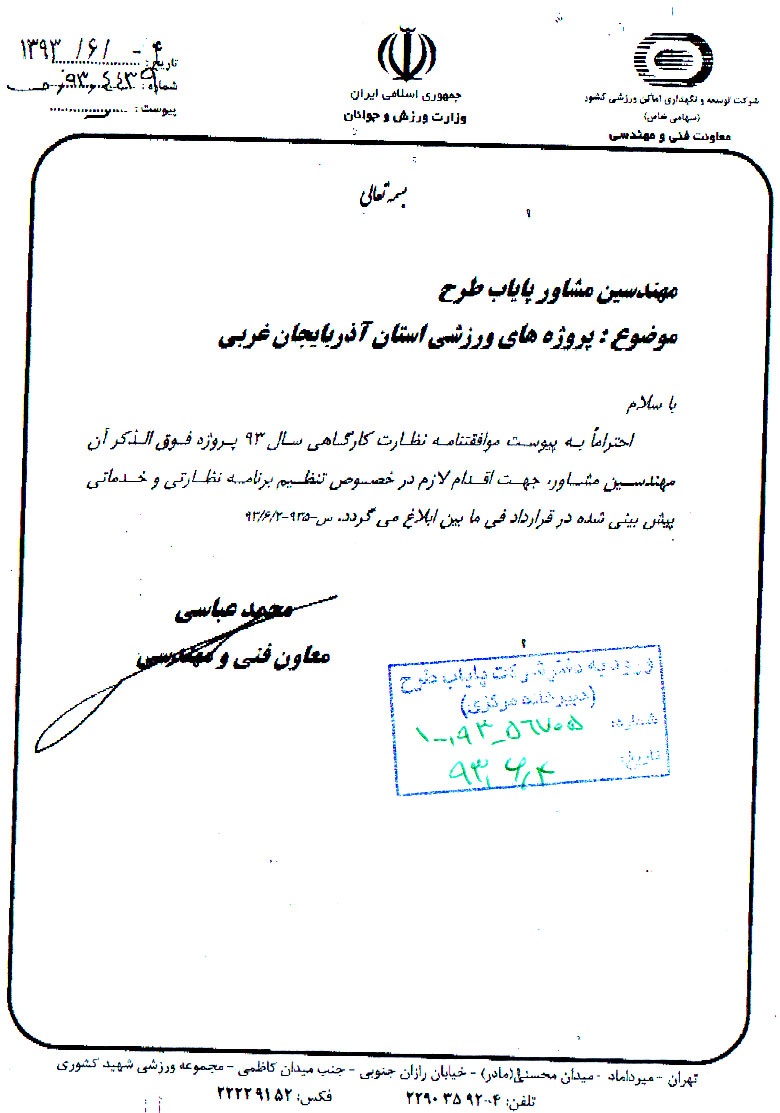 شرکت توسعه و نگهداری اماکن ورزشی کشور
(سهامی خاص)
معاونت فنی و مهندسی
جمهوری اسلامی ایران
وزارت ورزش و جوانان
تاریخ: ۱۳۹۳/۶/۰۴
شماره:
پیوست:
بسمه تعالی
مهندسین مشاور پایاب طرح
موضوع : پروژه های ورزشی استان آذربایجان غربی
با سلام
احتراماً به پیوست موافقتنامه نظارت کارگاهی سال ۹۳ پروژه فوق الذکر آن
مهندسین مشاور، جهت اقدام لازم در خصوص تنظیم برنامه نظارتی و خدماتی
پیش بینی شده در قرارداد فی ما بین ابلاغ می گردد. س-۹۳۵-۹۳/۶/۲
محمد عباسی
معاون فنی و مهندسی
ورود به دفتر شرکت پایاب طرح
(دبیرخانه مرکزی)
شماره:
تاریخ: ۹۳,۶,۴
تهران - میرداماد - میدان محسنی (مادر) - خیابان رازان جنوبی - جنب میدان کاظمی - مجموعه ورزشی شهید کشوری
تلفن: ۴-۹۲ ۳۵ ۲۲۹۰ فکس: ۵۲ ۹۱ ۲۲۲۲